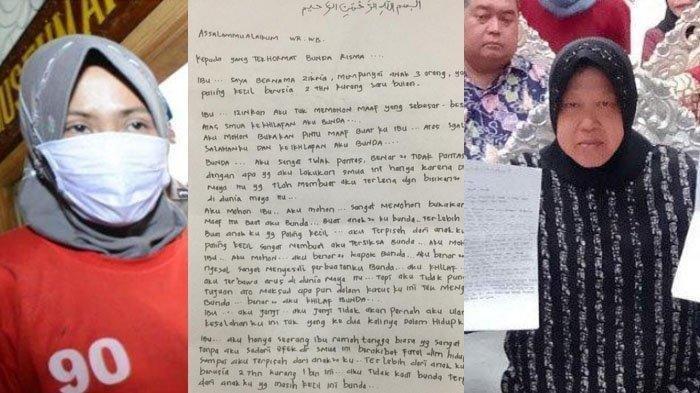 بسم الله الرحمن الرحيم
ASSALAMMUALAIKUM WR.WB.
Kepada yang TERHORMAT BUNDA RISMA ....
IBU ... SAYA BERNAMA ZIKRIA, MEMPUNYAI ANAK 3 ORANG, ya
PALING KECIL BERUSIA 2 THN KURANG SATU BULAN.
IBU ... IZINKAN AKU TUK MEMOHON MAAF YANG SEBESAR-BES
ATAS SMUA KEKHILAFAN AKU BUNDA...
AKU MOHON BUKAKAN PINTU MAAF BUAT KU IBU ... ATAS
SALAHANKU DAN KEIKHLAPAN AKU BUNDA.
BUNDA ... AKU SANGAT TIDAK PANTAS, BENAR" TIDAK PANTAS
DENGAN APA YG AKU LAKUKAN SMUA INI HANYA KARENA D
MAYA ITU YG TLAH MEMBUAT AKU TERLENA DGN BISIKAN"
DI DUNIA MAYA ITU...
AKU MOHON IBU... AKU MOHON ... SANGAT MEMOHON BUKAKAN
MAAF ITU BUAT AKU BUNDA... BUAT ANAK" KU BUNDA.. TERLEBIH
BUAT ANAKKU YG PALING KECIL ... AKU TERPISAH DARI ANAKKU
PALING KECIL SANGAT MEMBUAT AKU TERSIKSA BUNDA... AKU MOH
IBU.. AKU MOHON... AKU BENAR" KAPOK BUNDA. AKU BENAR"
NYESAL SANGAT MENYESALI PERBUATANKU BUNDA... AKU KHILAF
AKU TERBAWA ARUS DI DUNIA MAYA ITU... TAPI AKU TIDAK PUNYA
TUJUAN ATO MAKSUD APA PUN DALAM KASUS KU INI TUK MENG
BUNDA... BENAR" AKU KHILAF BUNDA...
IBU... AKU JANJI.. AKU JANJI TIDAK AKAN PERNAH AKU ULAN
KESALAHAN KU INI TUK YANG KE DUA KALINYA DALAM HIDUPK
IBU... AKU HANYA SEORANG IBU RUMAH TANGGA BIASA YG SANGAT
TANPA AKU SADARI EFEK DI SMUA INI BERAKIBAT FATAL DLM HIDUP
SAMPAI AKU TERPISAH DARI ANAK" KU... TERLEBIH DARI ANAKK
BERUSIA 2 THN KURANG 1 BLN INI... AKU TIDAK KUAT BUNDA TERP
DARI ANAKKU YG MASIH KECIL INI BUNDA...
90